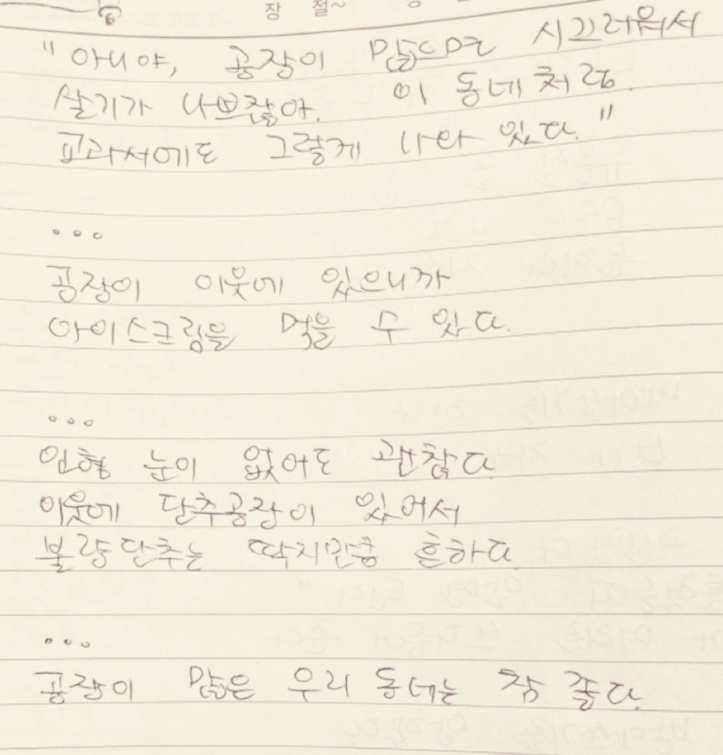 장 절~
"아니야, 공장이 많으면 시끄러워서
살기가 나쁘잖아. 이 동네처럼.
교과서에도 그렇게 나와 있다."
...
공장이 이웃에 있으니까
아이스크림을 먹을 수 있다.
...
인형 눈이 없어도 괜찮다.
이웃에 단추공장이 있어서
불량단추는 딱지만큼 흔하다.
...
공장이 많은 우리 동네는 참 좋다.